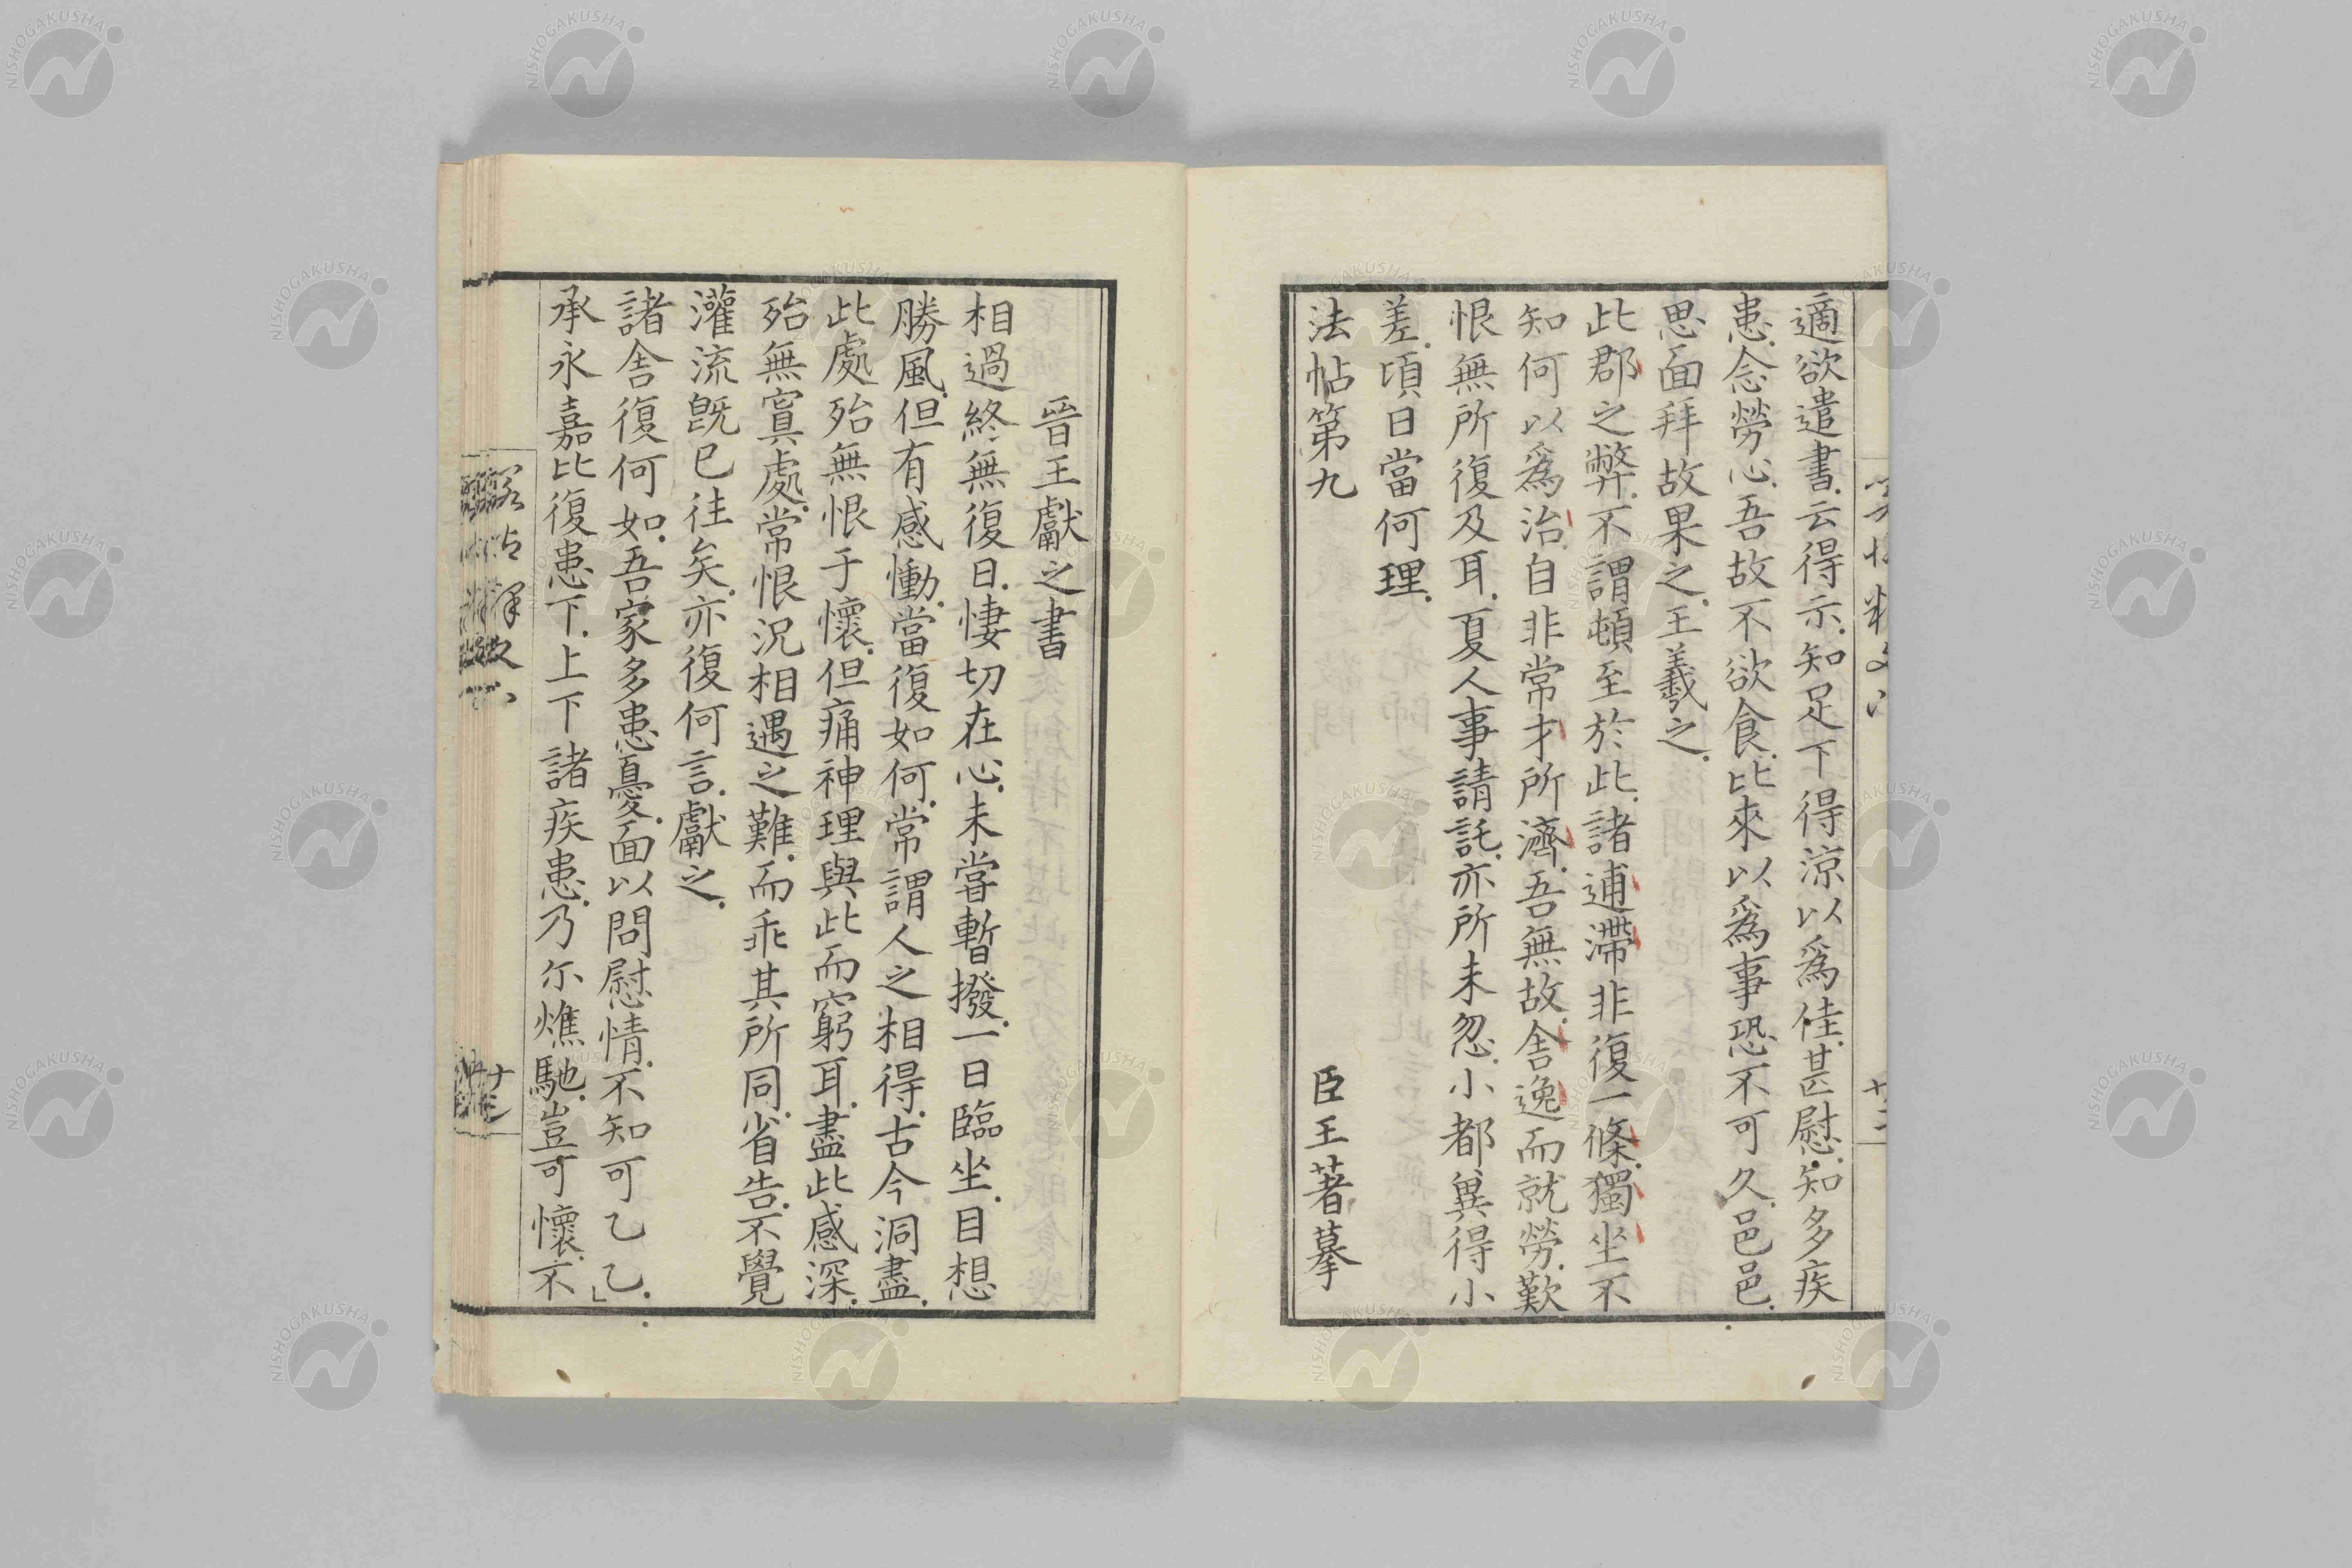 適欲遣書云得示知足下得涼以爲佳甚慰知多疾
患念勞心吾故不欲食比來以爲事恐不可久邑邑
思面拜故果之王羲之
此郡之弊不謂頓至於此諸逋滯非復一條獨坐不
知何以爲治自非常才所濟吾無故舍逸而就勞歎
恨無所復及耳夏人事請託亦所未忽小都異得小
差頃日當何理
法帖第九 臣王著摹
晉王獻之書
相過終無復日悽切在心未嘗暫撥一日臨坐目想
勝風但有感慟當復如何常謂人之相得古今洞盡
此處殆無恨于懷但痛神理與此而窮耳盡此感深
殆無寘處常恨況相遇之難而乖其所同省告不覺
灌流既已往矣亦復何言獻之
諸舍復何如吾家多患憂面以問慰情不知可乙乙
承永嘉比復患下上下諸疾患乃尓燋馳豈可懷不
NISHOGAKUSHA